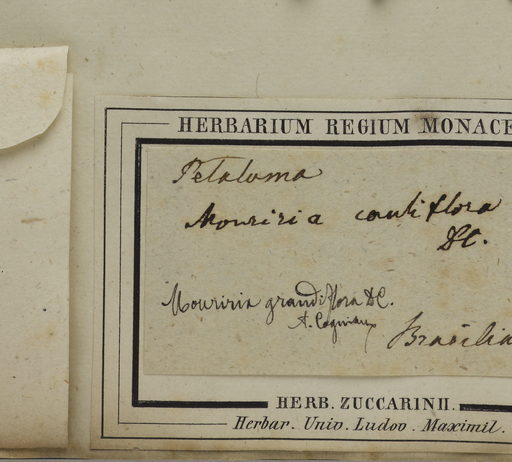 HERBARIUM REGIUM MONACE
Petaloma
Mouriria cauliflora
DC.
Mouriria grandiflora DC.
A. Cogniaux
Brasilia
HERB. ZUCCARINII.
Herbar. Univ. Ludov. Maximil.